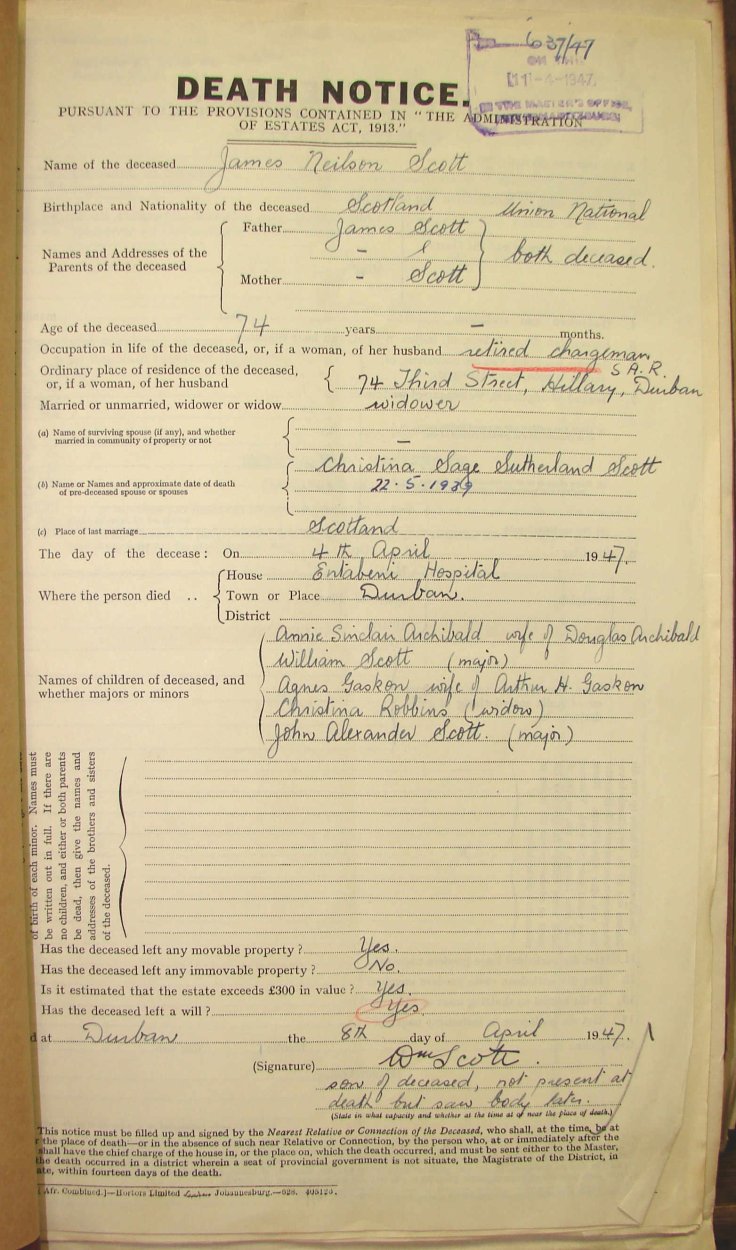 637/47
ON THIS
11-4-1947
IN THE MASTER'S OFFICE,
DEATH NOTICE.
PURSUANT TO THE PROVISIONS CONTAINED IN "THE ADMINISTRATION
OF ESTATES ACT, 1913."
Name of the deceased James Neilson Scott
Birthplace and Nationality of the deceased Scotland Union National
Names and Addresses of the Parents of the deceased
Father James Scott
both deceased.
Mother - Scott
Age of the deceased 74 years - months.
Occupation in life of the deceased, or, if a woman, of her husband retired chargeman
S.A.R.
Ordinary place of residence of the deceased,
or, if a woman, of her husband 74 Third Street, Hillary, Durban
Married or unmarried, widower or widow widower
(a) Name of surviving spouse (if any), and whether
married in community of property or not -
Christina Sage Sutherland Scott
(b) Name or Names and approximate date of death
of pre-deceased spouse or spouses 22.5.1939
(c) Place of last marriage Scotland
The day of the decease: On 4th April 1947.
House Entabeni Hospital
Where the person died .. Town or Place Durban.
District
Annie Sinclair Archibald wife of Douglas Archibald
William Scott (major)
Names of children of deceased, and
whether majors or minors
Agnes Gaskon wife of Arthur H. Gaskon
Christina Robbins (widow)
John Alexander Scott. (major)
of birth of each minor. Names must
be written out in full. If there are
no children, and either or both parents
be dead, then give the names and
addresses of the brothers and sisters
of the deceased.
Has the deceased left any movable property? Yes.
Has the deceased left any immovable property? No.
Is it estimated that the estate exceeds £300 in value? Yes.
Has the deceased left a will? Yes.
d at Durban the 8th day of April 1947.
(Signature) Wm Scott.
son of deceased, not present at
death but saw body later.
(State in what capacity and whether at the time at or near the place of death.)
This notice must be filled up and signed by the Nearest Relative or Connection of the Deceased, who shall, at the time, be at
the place of death—or in the absence of such near Relative or Connection, by the person who, at or immediately after the
shall have the chief charge of the house in, or the place on, which the death occurred, and must be sent either to the Master,
the death occurred in a district wherein a seat of provincial government is not situate, the Magistrate of the District, in
ate, within fourteen days of the death.
Afr. Combined.]—Hortors Limited Johannesburg.—